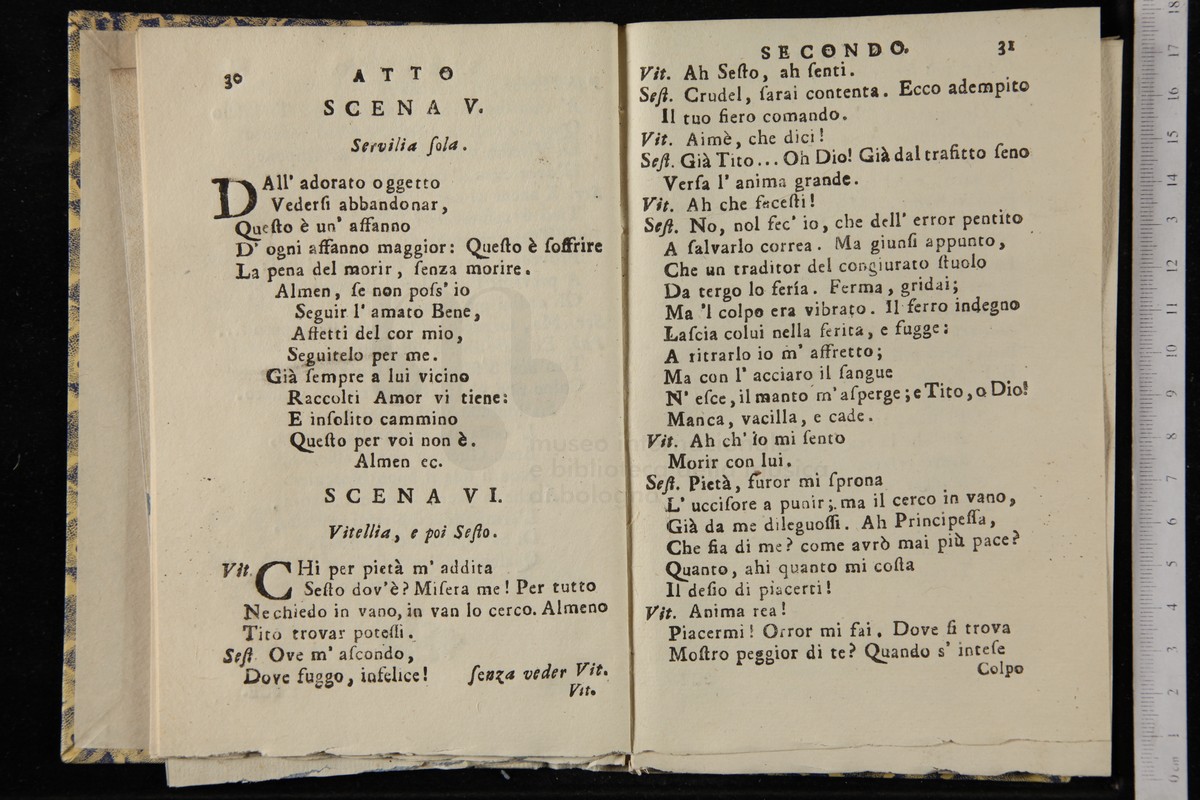 30
ATTO
SCENA V.
Servilia ſola.
DAll' adorato oggetto
Vederſi abbandonar,
Queſto è un' affanno
D' ogni affanno maggior: Queſto è ſoffrire
La pena del morir, ſenza morire.
Almen, ſe non poſs' io
Seguir l' amato Bene,
Affetti del cor mio,
Seguitelo per me.
Già ſempre a lui vicino
Raccolti Amor vi tiene:
E inſolito cammino
Queſto per voi non è.
Almen ec.
SCENA VI.
Vitellia, e poi Seſto.
Vit. CHi per pietà m' addita
Seſto dov'è? Miſera me! Per tutto
Ne chiedo in vano, in van lo cerco. Almeno
Tito trovar poteſſi.
Seſt. Ove m' aſcondo,
Dove fuggo, infelice! ſenza veder Vit.
Vit.
SECONDO. 31
Vit. Ah Seſto, ah ſenti.
Seſt. Crudel, ſarai contenta. Ecco adempito
Il tuo fiero comando.
Vit. Aimè, che dici!
Seſt. Già Tito... Oh Dio! Già dal trafitto ſeno
Verſa l' anima grande.
Vit. Ah che faceſti!
Seſt. No, nol fec' io, che dell' error pentito
A ſalvarlo correa. Ma giunſi appunto,
Che un traditor del congiurato ſtuolo
Da tergo lo fería. Ferma, gridai;
Ma 'l colpo era vibrato. Il ferro indegno
Laſcia colui nella ferita, e fugge:
A ritrarlo io m' affretto;
Ma con l' acciaro il ſangue
N' eſce, il manto m' aſperge; e Tito, o Dio!
Manca, vacilla, e cade.
Vit. Ah ch' io mi ſento
Morir con lui.
Seſt. Pietà, furor mi ſprona
L' ucciſore a punir; ma il cerco in vano,
Già da me dileguoſſi. Ah Principeſſa,
Che fia di me? come avrò mai più pace?
Quanto, ahi quanto mi coſta
Il deſio di piacerti!
Vit. Anima rea!
Piacermi! Orror mi fai. Dove ſi trova
Moſtro peggior di te? Quando s' inteſe
Colpo